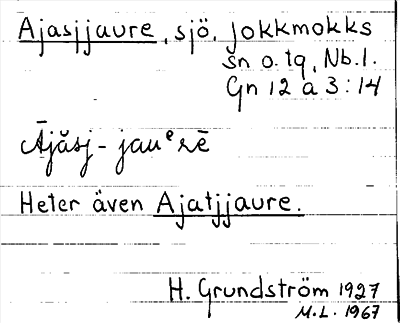 Ajasjjaure, sjö, Jokkmokks
sn o. tg, Nb.l.
Gn 12 a 3:14
Ājăsj-jauᵉrē
Heter även Ajatjjaure.
H. Grundström 1927
M.L. 1967